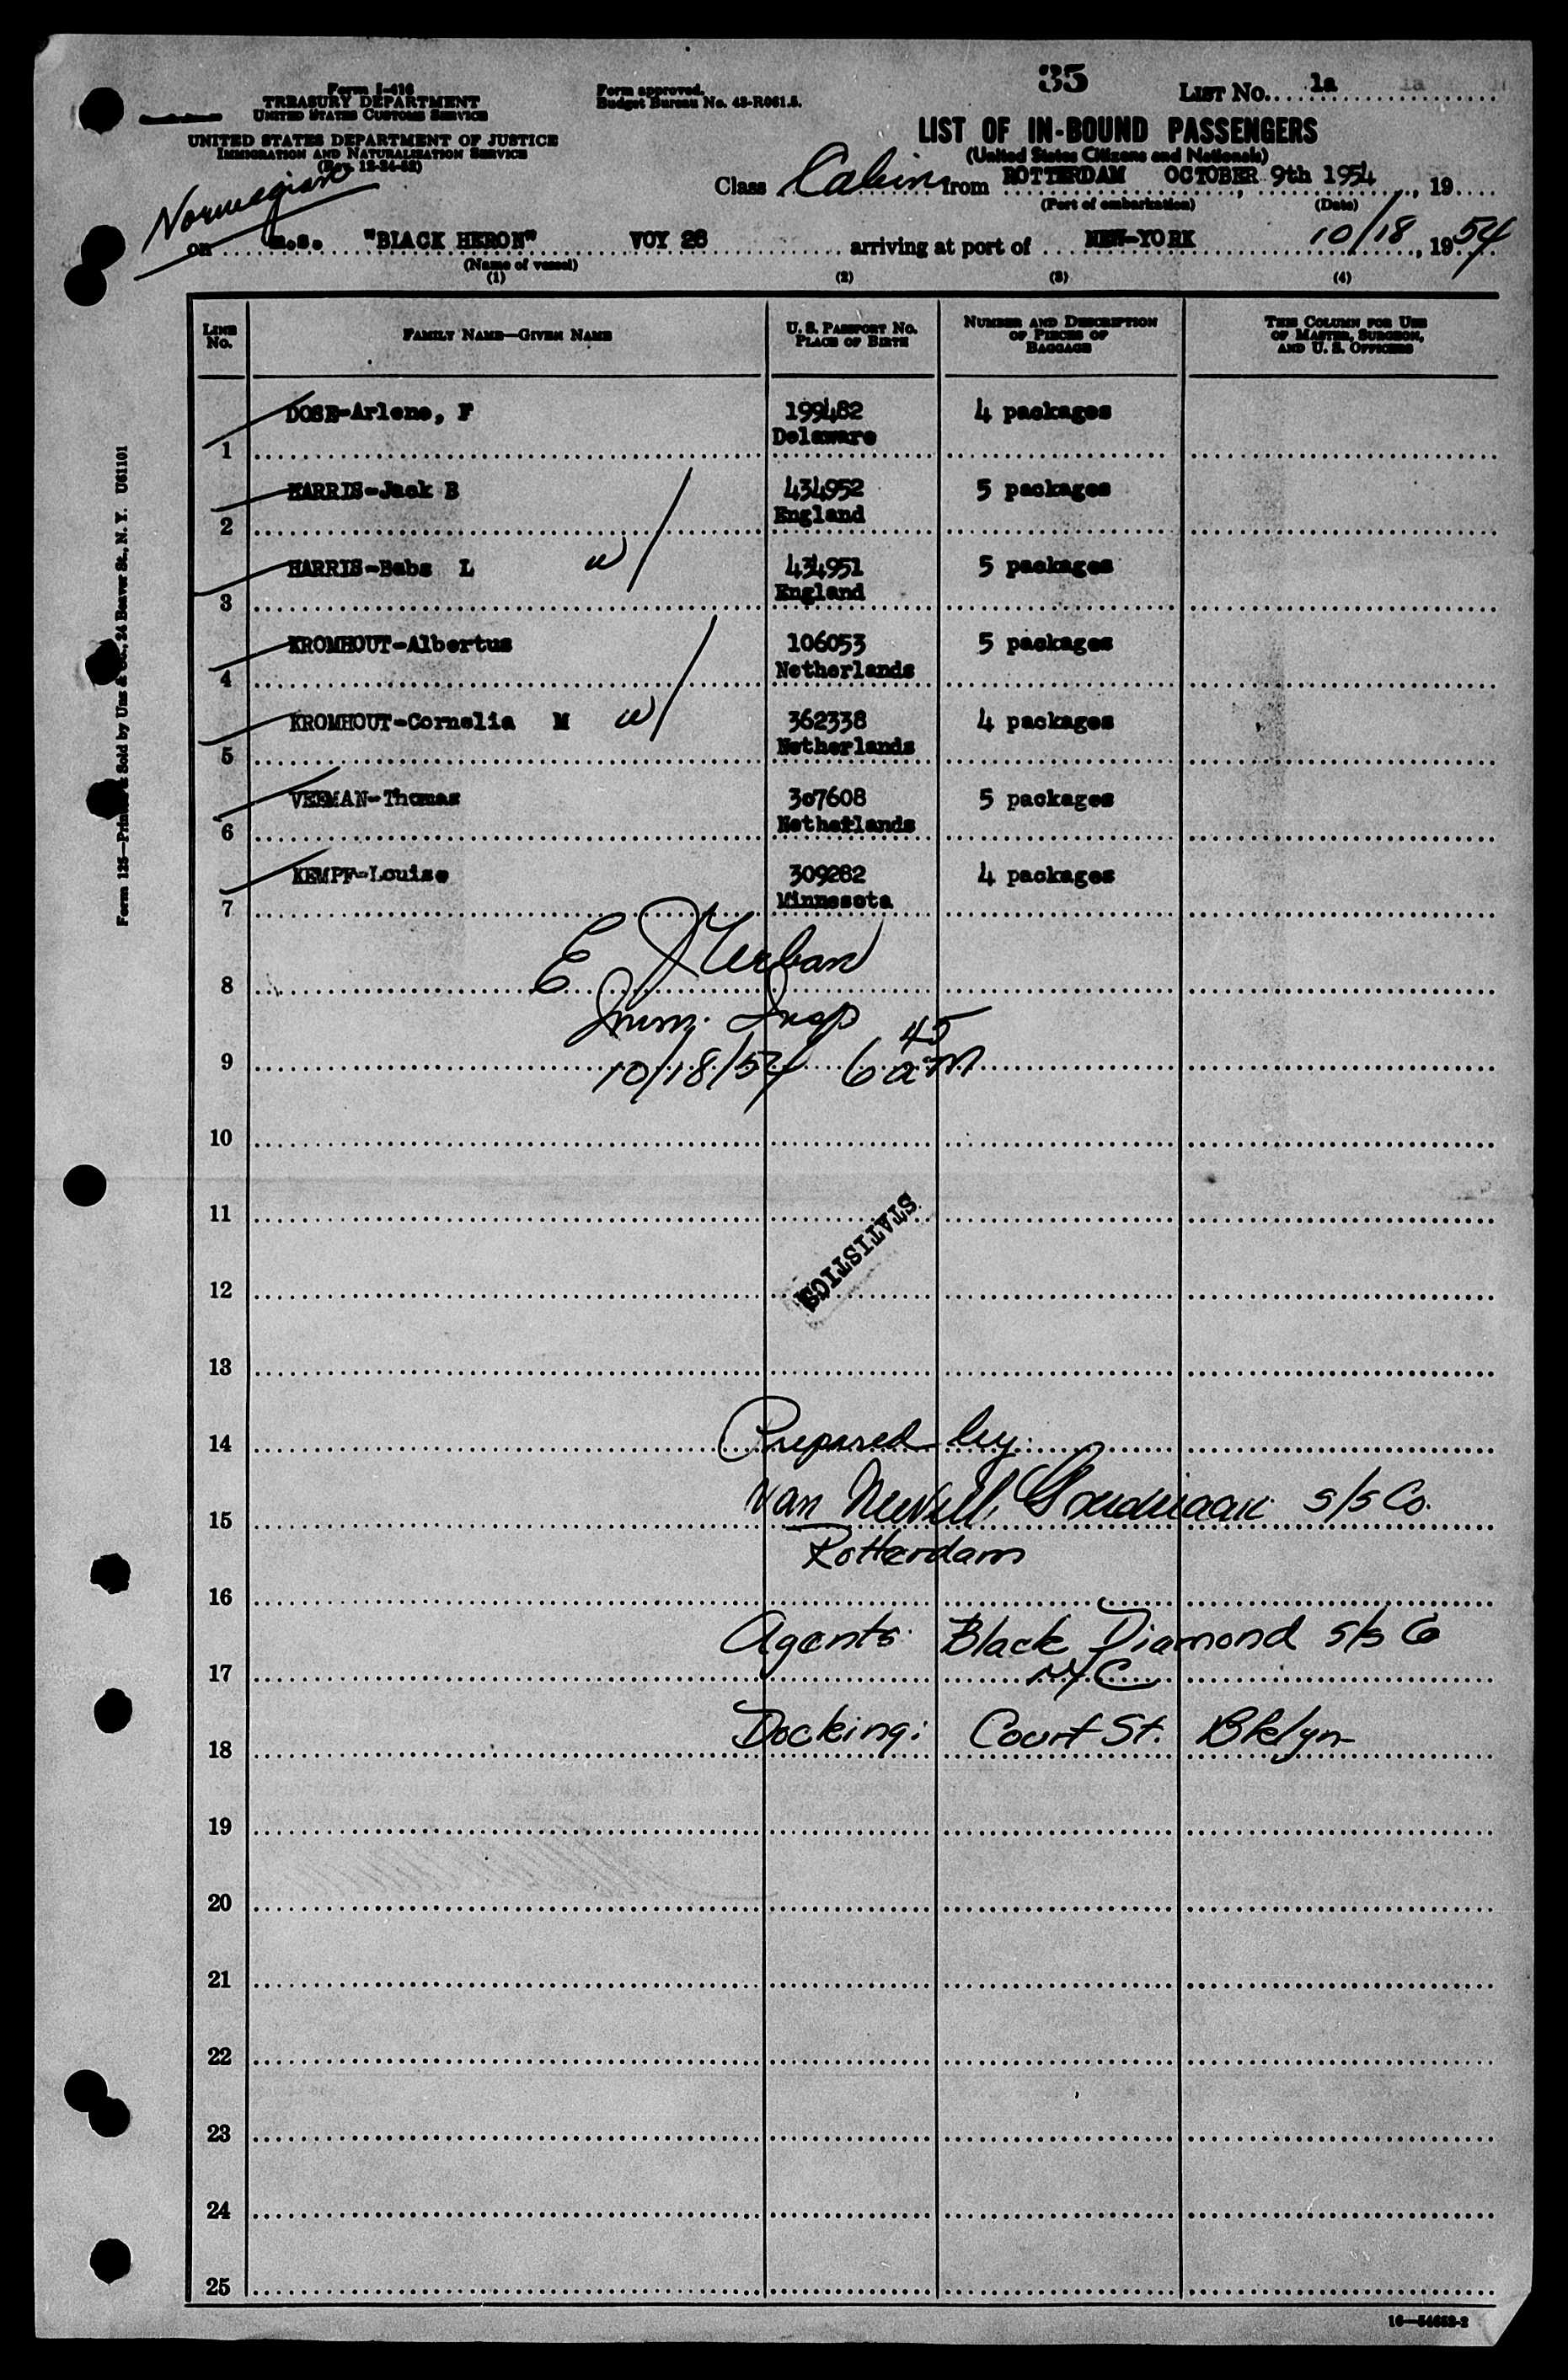 35
Form I-418
TREASURY DEPARTMENT
UNITED STATES CUSTOMS SERVICE
UNITED STATES DEPARTMENT OF JUSTICE
IMMIGRATION AND NATURALIZATION SERVICE
(Rev. 12-24-52)
Form approved.
Budget Bureau No. 43-R061.5.
LIST NO. 1a
LIST OF IN-BOUND PASSENGERS
(United States Citizens and Nationals)
Class Cabin from ROTTERDAM OCTOBER 9th 1954, 19
(Port of embarkation) (Date)
Norwegian
on m.s. "BLACK HERON" VOY 28 arriving at port of NEW-YORK 10/18, 1954
(Name of vessel)
(1) (2) (3) (4)
LINE NO. FAMILY NAME—GIVEN NAME U. S. PASSPORT NO. PLACE OF BIRTH NUMBER AND DESCRIPTION OF PIECES OF BAGGAGE THIS COLUMN FOR USE OF MASTER, SURGEON, AND U. S. OFFICERS
DOSE-Arlene, F 199482 4 packages
1 Delaware
HARRIS-Jack B 434952 5 packages
2 England
HARRIS-Babs L w/ 434951 5 packages
3 England
KROMHOUT-Albertus 106053 5 packages
4 Netherlands
KROMHOUT-Cornelia M w/ 362338 4 packages
5 Netherlands
VEEMAN-Thomas 307608 5 packages
6 Netherlands
KEMPF-Louise 309282 4 packages
7 Minnesota
E Urban
8
Imm. Insp
9 10/18/54 6 45 am
10
11
STATISTICS
12
13
14 Prepared by:
15 Van s/s Co.
Rotterdam
16
Agents: Black Diamond s/s Co
17 NYC
18 Docking: Court St. Bklyn
19
20
21
22
23
24
25
16—54652-2
Form 125—Printed & Sold by Unz & Co., 24 Beaver St., N. Y. U61101